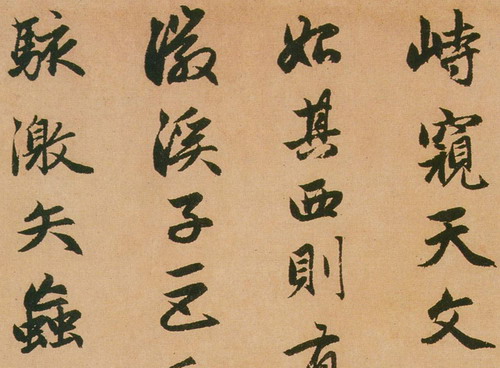 峙窺天文
始其西則有
徽溪子巨
駭激矢蝱